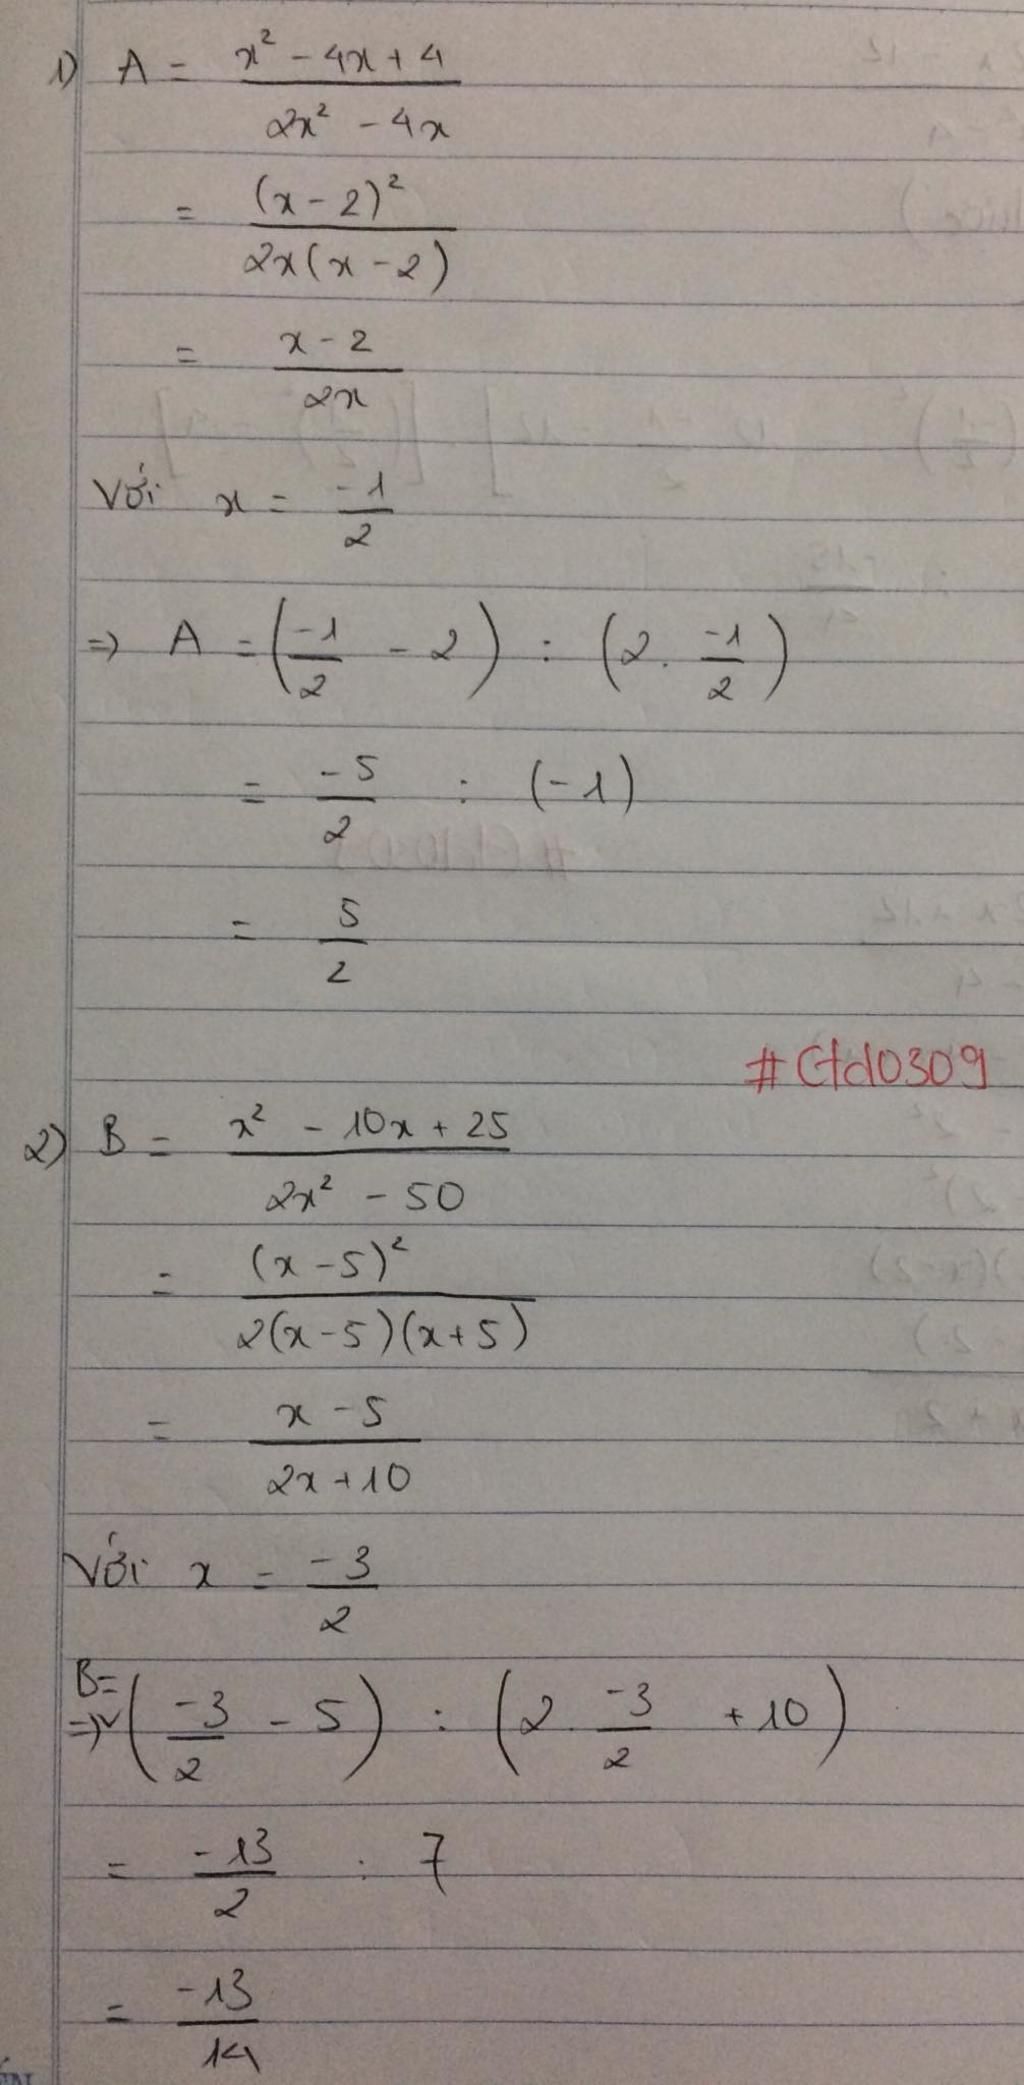 1) A = (x² - 4x + 4) / (2x² - 4x)
= (x - 2)² / (2x(x - 2))
= (x - 2) / (2x)
Với x = -1/2
=> A = (-1/2 - 2) : (2 . -1/2)
= -5/2 : (-1)
= 5/2
#Ctd0309
2) B = (x² - 10x + 25) / (2x² - 50)
= (x - 5)² / (2(x - 5)(x + 5))
= (x - 5) / (2x + 10)
Với x = -3/2
=> B = (-3/2 - 5) : (2 . -3/2 + 10)
= -13/2 : 7
= -13/14